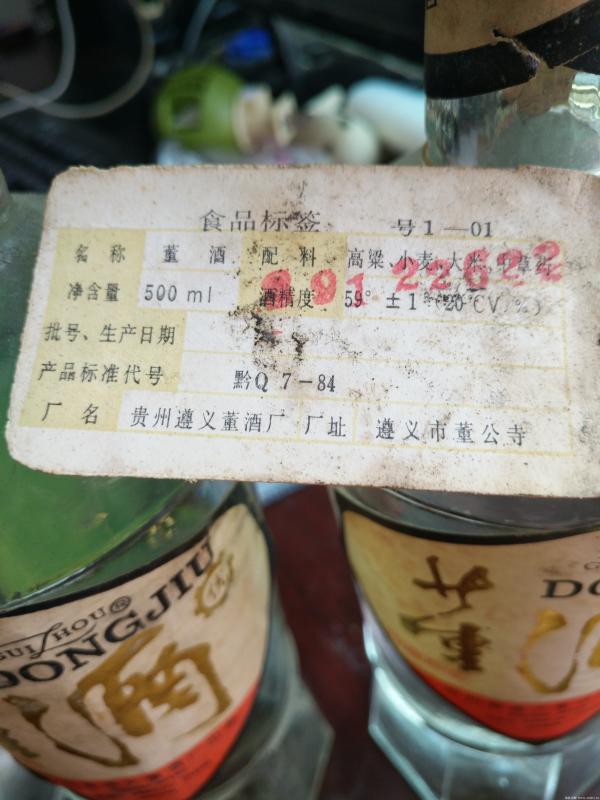 食品标签 号1—01
名称 董酒 配料 高粱、小麦、大米、中草药
净含量 500 ml 酒精度 59° ±1°(20℃V/%)
891 22622
批号、生产日期
产品标准代号 黔Q 7-84
厂名 贵州遵义董酒厂 厂址 遵义市董公寺
GUIZHOU®
DONGJIU
酒
DO
董